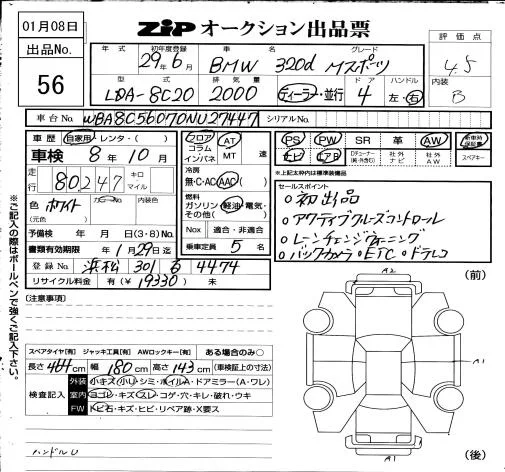 01月08日
ZIP オークション出品票
出品No.
56
評価点
4.5
内装
B
年式 初年度登録 車名 グレード
29年6月 BMW 320d Mスポーツ
型式 排気量 ドア ハンドル
LDA-8C20 2000 ディーラー・並行 4 左・右
車台No. WBA8C56070NU27447 シリアルNo.
車歴 自家用・レンタ・( )
車検 8年10月
走行 80247 キロ マイル
色 ホワイト カラーNo. 内装色
(元色)
予備検 年 月 日(3・8)No.
書類有効期限 年1月29日迄
登録No. 浜松 301 る 4474
リサイクル料金 有(¥19330) 未
フロア
コラム
インパネ
AT
MT 速
冷房
無・C・AC・AAC
燃料
ガソリン・軽油・電気・
その他( )
Nox 適合・非適合
乗車定員 5 名
PS PW SR 革 AW 新車時保証書
ナビ エアB 社外ナビ 社外AW スペアキー
※上記太枠内は標準装備品
セールスポイント
○初出品
○アクティブクルーズコントロール
○レーンチェンジウォーニング
○バックカメラ○ETC○ドラレコ
※ご記入の際はボールペンで強くご記入下さい。
[注意事項]
スペアタイヤ[有] ジャッキ工具[有] AWロックキー[有] ある場合のみ○
長さ 464cm 幅 180cm 高さ 143cm (車検証上の寸法)
検査記入
外装 小キズ・小リ・シミ・ホイルA・ドアミラー(A・ワレ)
室内 ヨゴレ・キズ・スレ・コゲ・穴・キレ・破れ・ウキ
FW トビ石・キズ・ヒビ・リペア跡・X要ス
ハンドルU
(前)
A2
A1
(後)